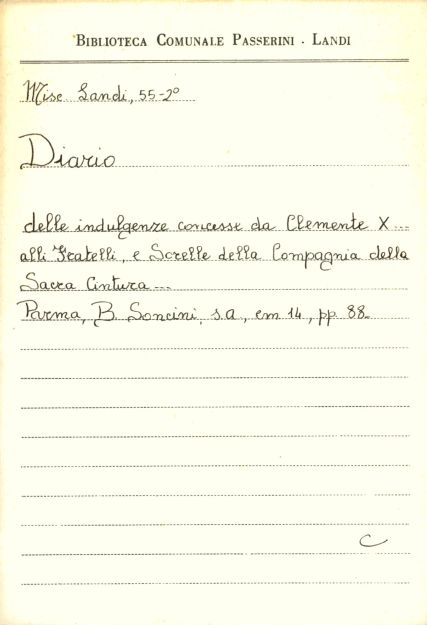 BIBLIOTECA COMUNALE PASSERINI - LANDI
Misc Landi, 55-2°
Diario
delle indulgenze concesse da Clemente X...
alli Fratelli, e Sorelle della Compagnia della
Sacra Cintura...
Parma, B. Soncini, s.a., cm 14, pp. 88.
C